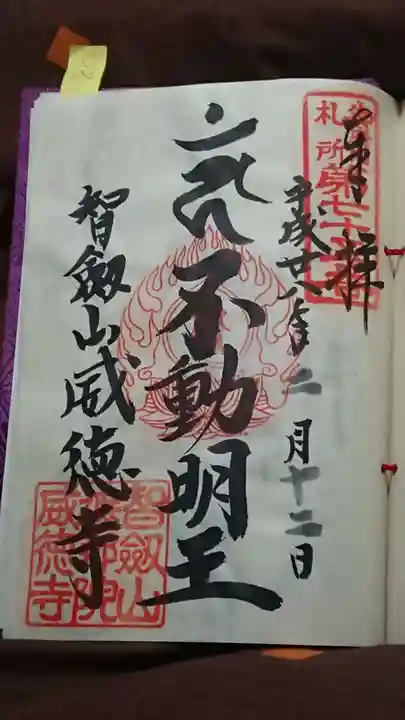 奉拝
平成廿八年二月十二日
不動明王
智劔山威徳寺
札所第七
智劔山
威徳寺